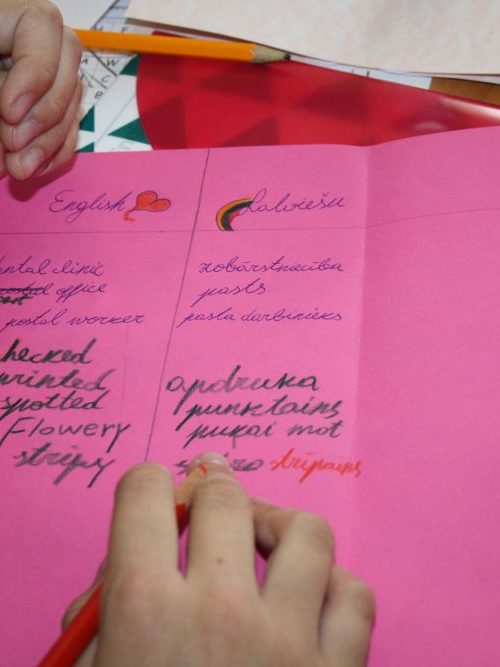 English Latviešu
ntal clinic zobārstniecība
office pasts
postal worker pasta darbinieks
hecked
rinted apdruka
spotted punktains
Flowery puķai mot
stripy stripains